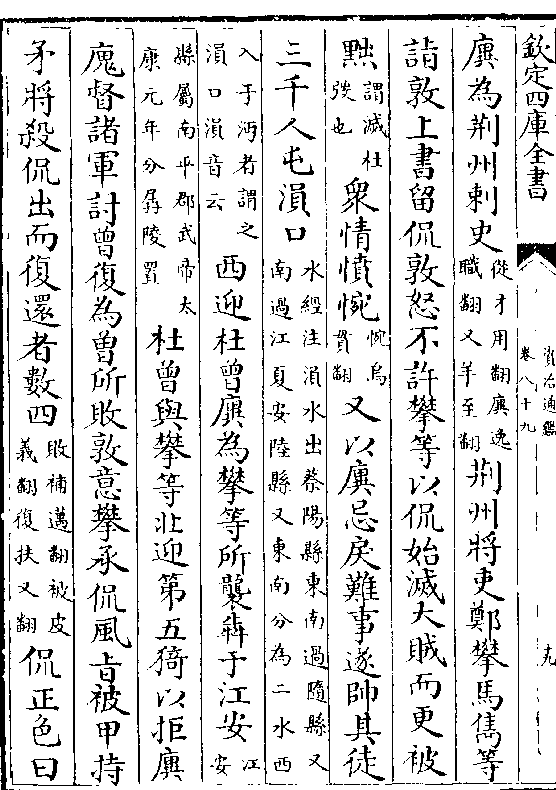 欽定四庫全書
資治通鑑
卷八十九
十九
廙為荆州刺史從才用翻廙逸職翻又羊至翻荆州將吏鄭攀馬雋等
詣敦上書留侃敦怒不許攀等以侃始滅大賊而更被
黜謂滅杜弢也衆情憤惋惋烏貫翻又以廙忌戾難事遂帥其徒
三千人屯溳口水經注溳水出蔡陽縣東南過隨縣又南過江夏安陸縣又東南分為二水西
入于沔者謂之溳口溳音云西迎杜曾廙為攀等所襲犇于江安江安
縣屬南平郡武帝太康元年分孱陵置杜曾與攀等北迎第五猗以拒廙
廙督諸軍討曾復為曾所敗敦意攀承侃風㫖被甲持
矛將殺侃出而復還者數四敗補邁翻被皮義翻復扶又翻侃正色曰